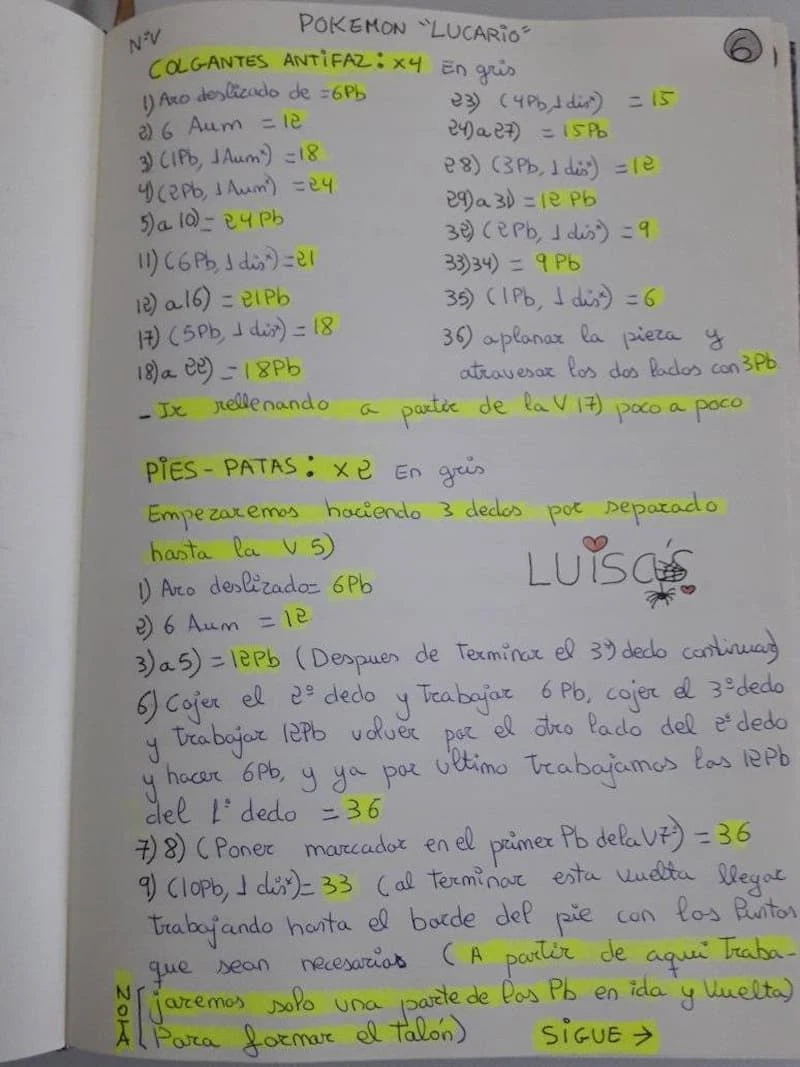 POKEMON "LUCARIO"
6
NºV
COLGANTES ANTIFAZ: x4 En gris
1) Aro deslizado de =6Pb
2) 6 Aum = 12
3) (1Pb, 1 Aumˣ) =18
4) (2Pb, 1 Aumˣ) =24
5) a 10) = 24Pb
11) (6Pb, 1 disˣ) =21
12) a 16) = 21Pb
17) (5Pb, 1 disˣ) = 18
18) a 22) = 18Pb
23) (4Pb, 1 disˣ) = 15
24) a 27) = 15Pb
28) (3Pb, 1 disˣ) = 12
29) a 31) = 12 Pb
32) (2Pb, 1 disˣ) = 9
33) 34) = 9 Pb
35) (1Pb, 1 disˣ) = 6
36) aplanar la pieza y
atravesar los dos lados con 3Pb
- Ir rellenando a partir de la V 17) poco a poco
PiES - PATAS: x 2 En gris
Empezaremos haciendo 3 dedos por separado
hasta la V 5)
LUISA'S
1) Aro deslizado= 6Pb
2) 6 Aum = 12
3) a 5) = 12Pb (Despues de Terminar el 3º) dedo continuar)
6) Cojer el 2º dedo y Trabajar 6 Pb, cojer el 3º dedo
y Trabajar 12Pb volver por el otro lado del 2º dedo
y hacer 6Pb, y ya por último Trabajamos los 12Pb
del 1º dedo = 36
7) 8) (Poner marcador en el primer Pb de la V7ª) = 36
9) (10Pb, 1 disˣ)= 33 (al Terminar esta vuelta llegar
Trabajando hasta el borde del pie con los Puntos
que sean necesarios (A partir de aqui Traba-
NOTA [jaremos solo una parte de los Pb en ida y Vuelta)
Para formar el talón) SiGUE →